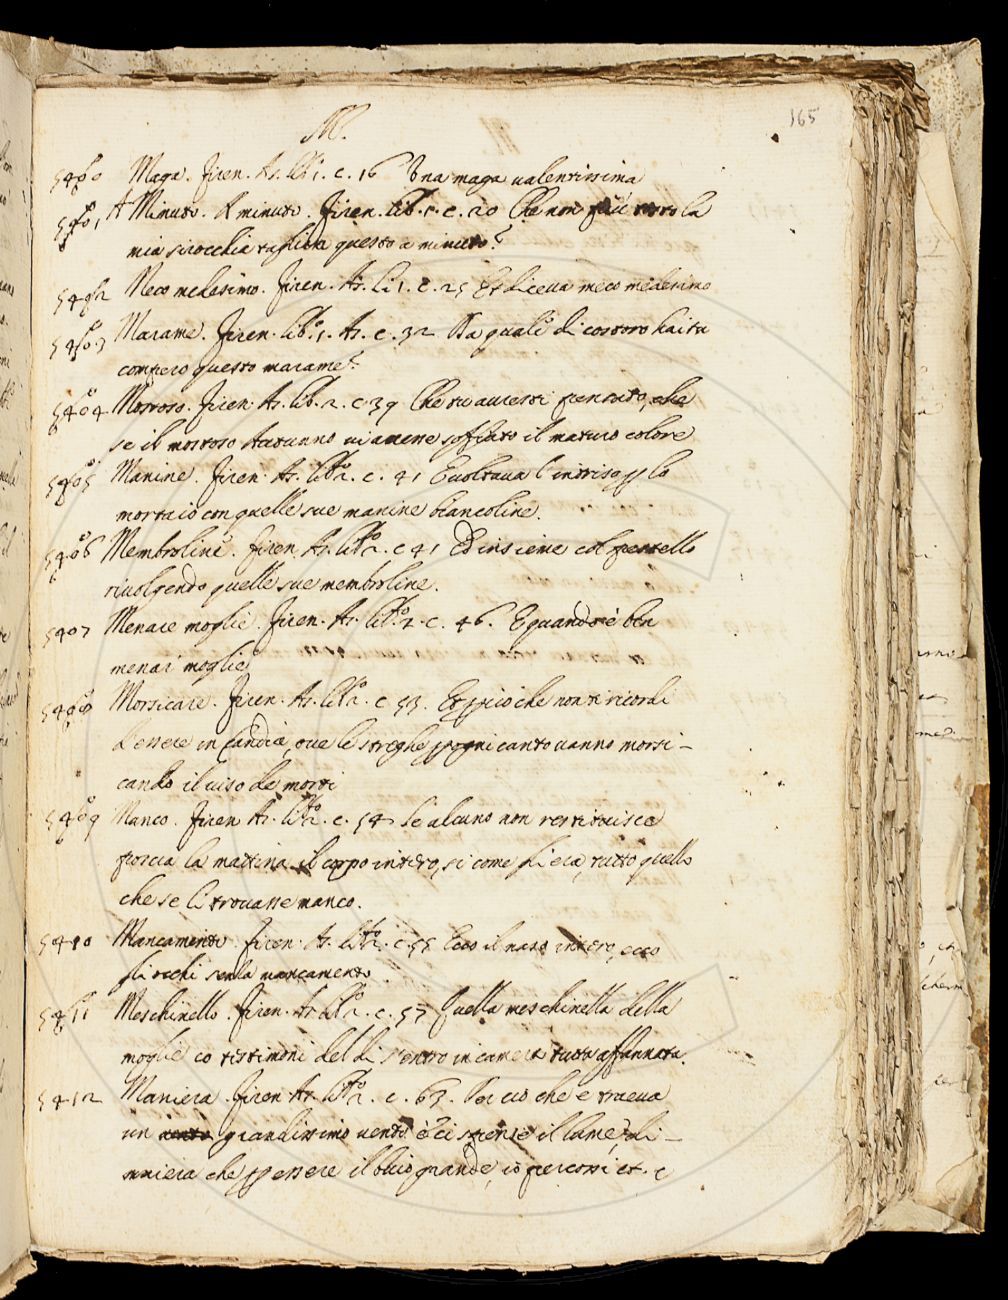 M.
165
5400 Maga. Firen. As. lib. 1. c. 16 Una maga valentissima
5401 A Minuto. A minuto. Firen. lib. 1. c. 20 Che non
mia sirocchia questo a minuto?
5402 Meco medesimo. Firen. As. li 1. c. 25 Et diceva meco medesimo
5403 Marame. Firen. lib.o 1. As. c. 32 Da quali di costoro hai tu
compero questo marame?
5404 Mostoso. Firen. As. lib. 2. c. 39 Che tu avresti pensato, che
se il mostoso Autunno vi avesse soffiato il maturo colore
5405 Manine. Firen. As. lib.o 2. c. 41 E voltava l'intriso p lo
mortaio con quelle sue manine biancoline.
5406 Membroline. Firen. As. lib.o 2. c. 41 Ed insieme col pestello
rivolgendo quelle sue membroline.
5407 Menare moglie. Firen. As. lib.o 2. c. 46. E quando e ben
menai moglie
5408 Morsicare. Firen. As. lib.o 2. c. 53. Et p cio che non ti ricordi
d'essere in Candia, ove le streghe p ogni canto vanno morsi-
cando il viso de morti
5409 Manco. Firen. As. lib.o 2. c. 54 Se alcuno non restituisce
poscia la mattina il corpo intero, si come gli era, tutto quello
che se li trovasse manco.
5410 Mancamento. Firen. As. lib.o 2. c. 55 Ecco il naso intero, ecco
gli occhi senza mancamento
5411 Meschinello. Firen. As. lib.o 2. c. 57 Quella meschinella della
moglie co testimoni del di entro in camera tutta affannata.
5412 Maniera. Firen. As. lib.o 2. c. 63. Per cio che e traeva
un grandissimo vento e ci spense il lume, di-
maniera che p essere il buio grande, io percossi et. c